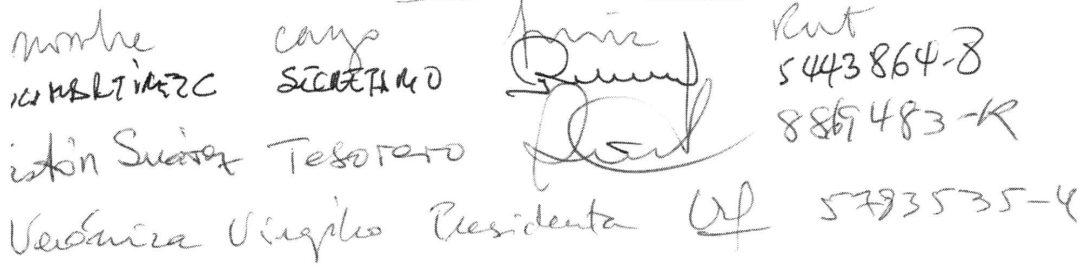 nombre cargo firma Rut
MARTINEZ C SECRETARIO 5443864-8
istón Suárez Tesorero 8869483-K
Verónica Virgilio Presidenta 5783535-4